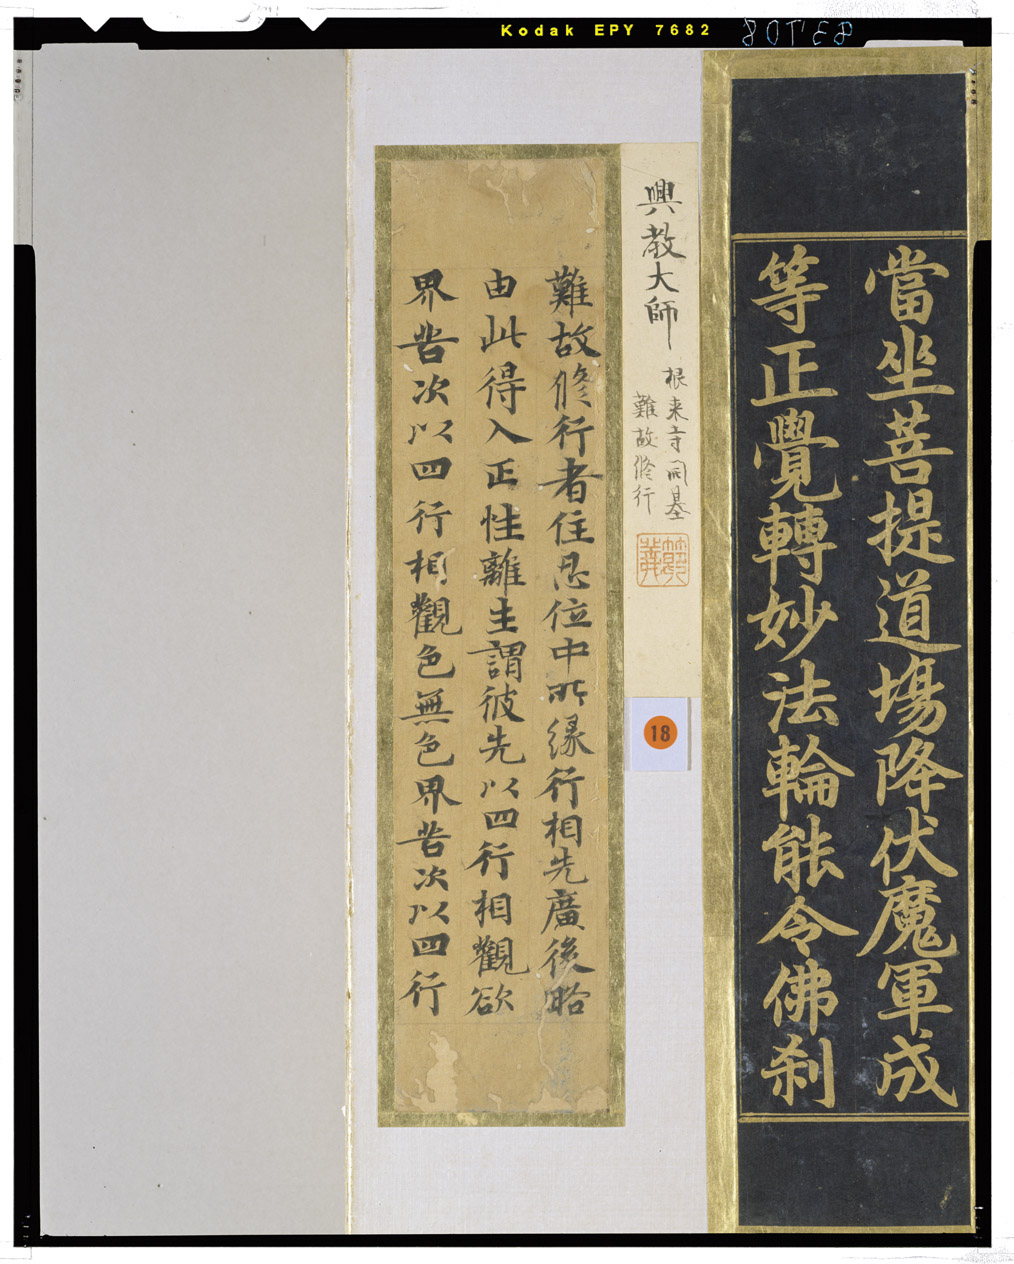 Kodak EPY 7682
當坐菩提道場降伏魔軍成
等正覺轉妙法輪能令佛刹
興教大師
根来寺開基
難故修行
18
難故修行者住忍位中所縁行相先廣後略
由此得入正性離生謂彼先以四行相觀欲
界苦次以四行相觀色無色界苦次以四行